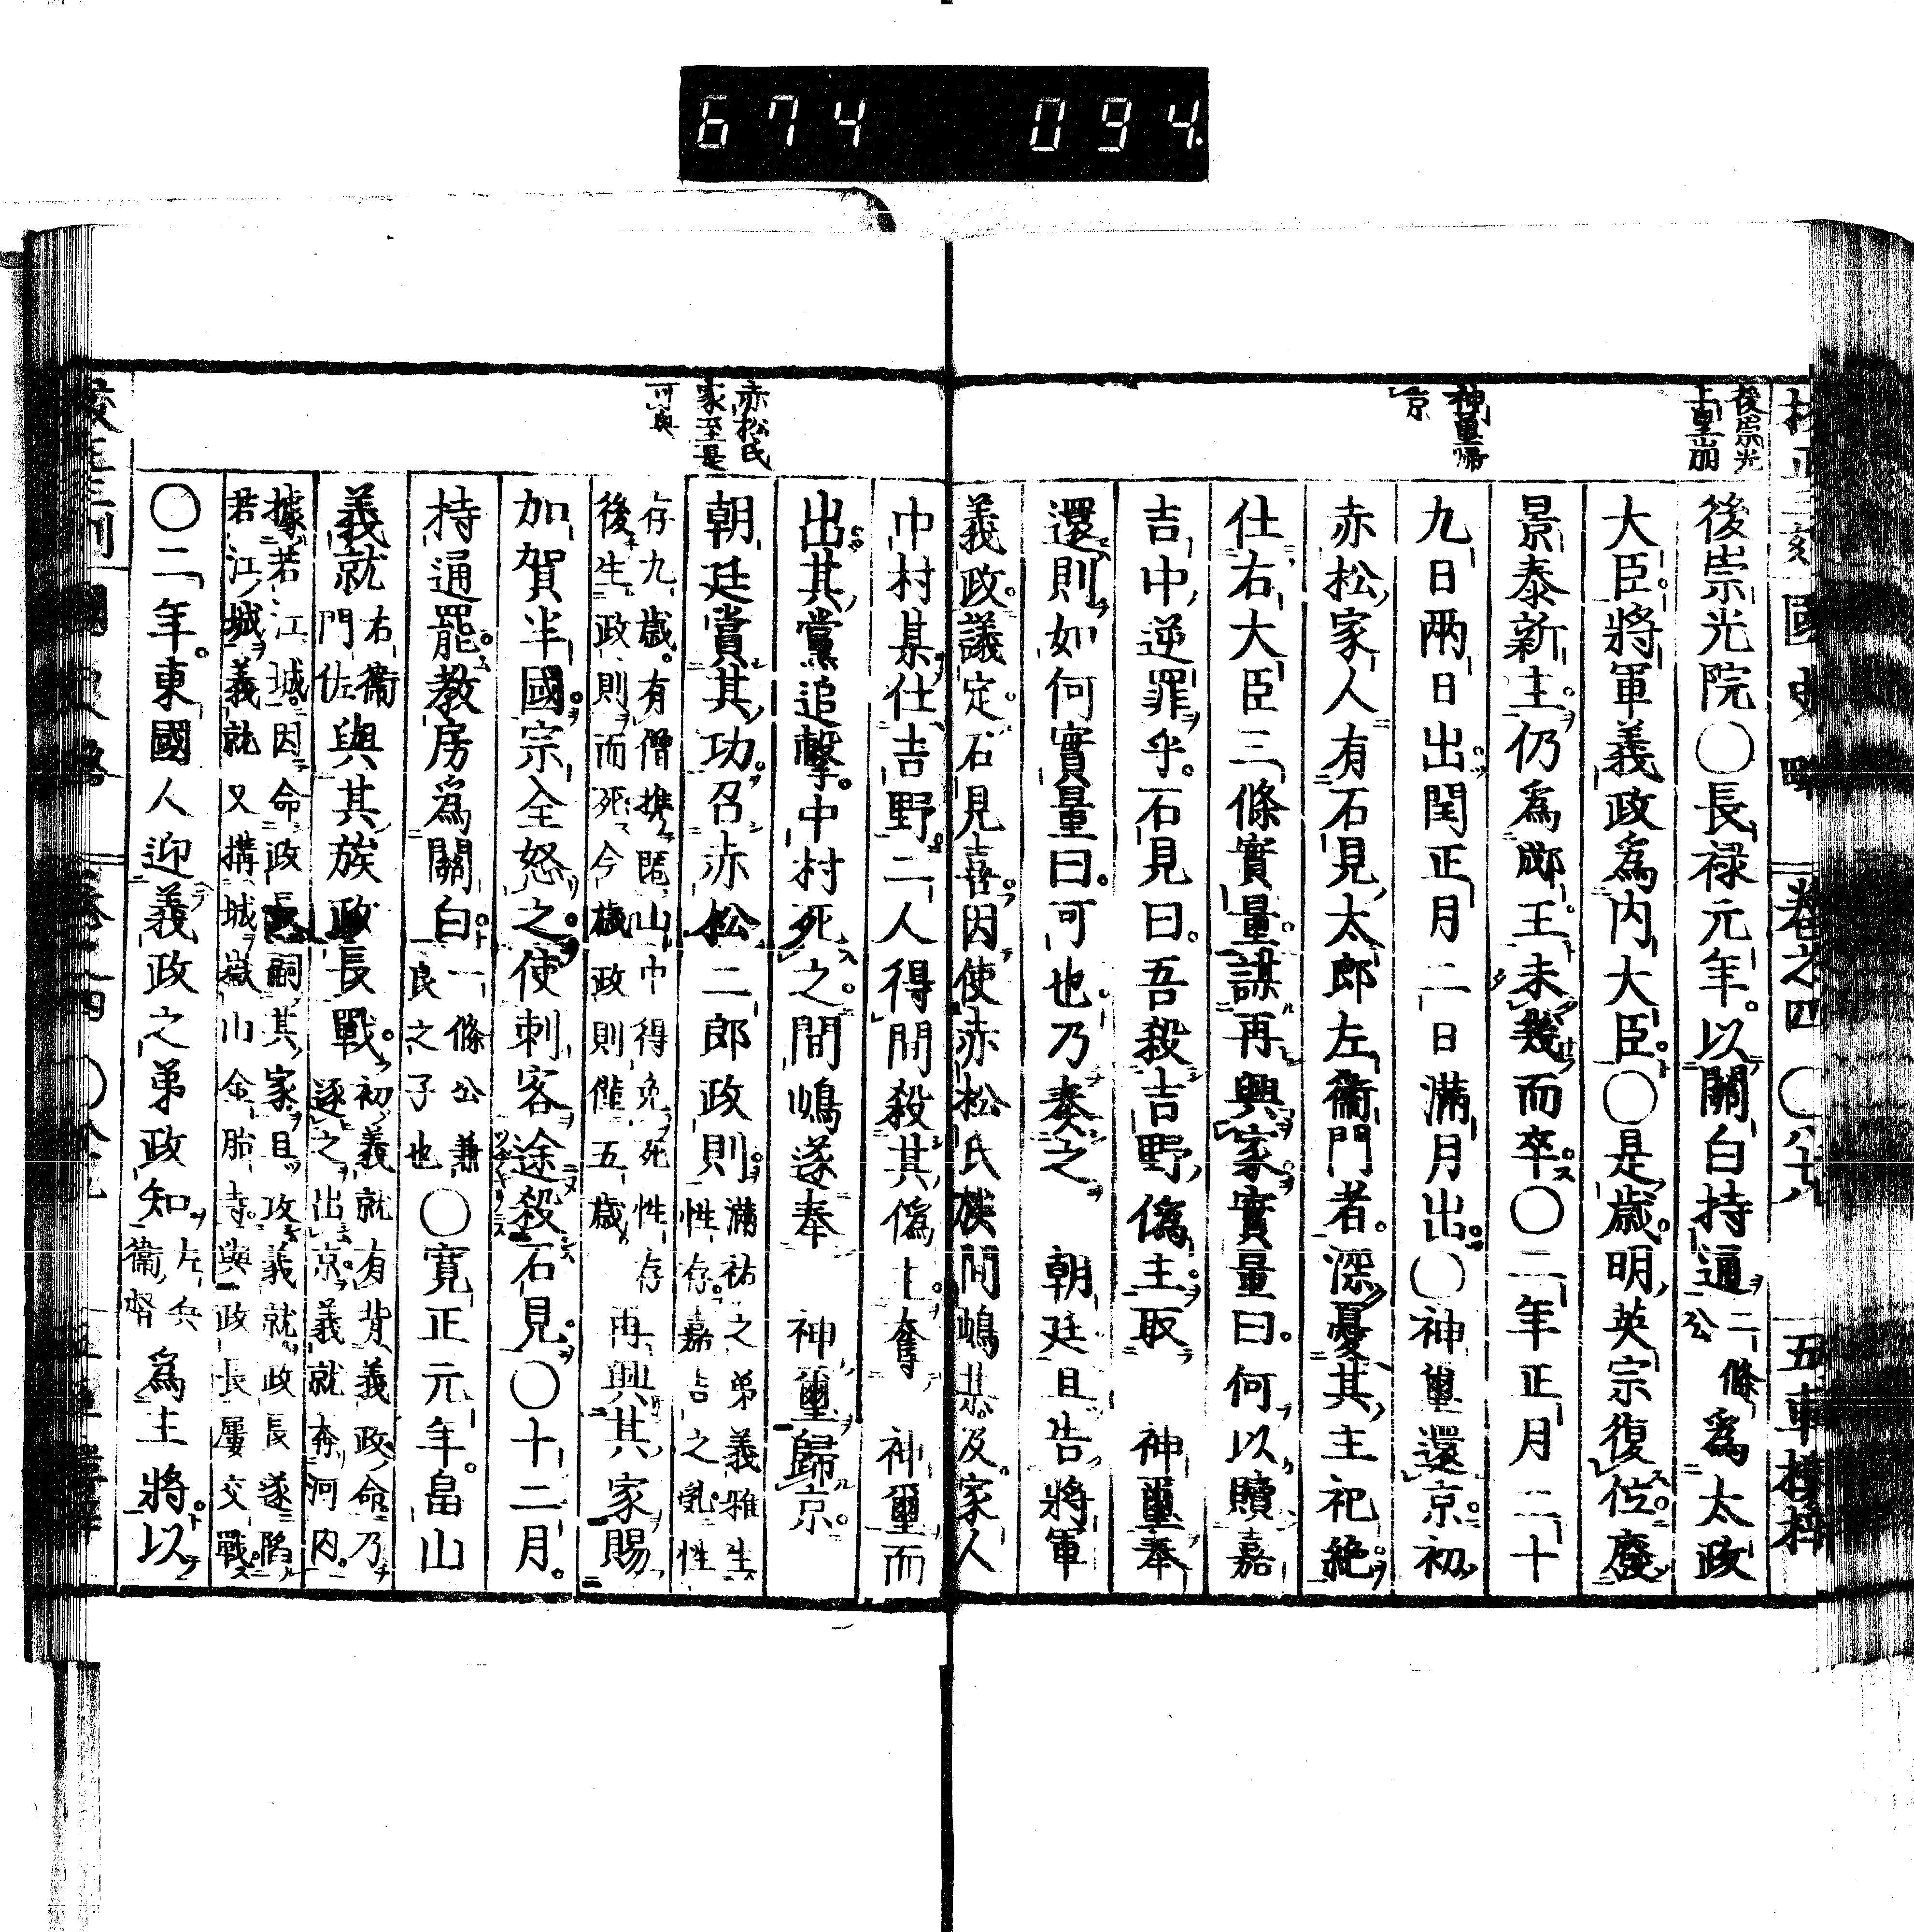 674 094.
後崇光
上皇崩
神璽歸
京
國史略 卷之四 ○八十八 五車樓梓
後崇光院○長禄元年。以關白持通二條公爲太政
大臣。將軍義政爲内大臣。○是歳。明英宗復位。廢
景泰新主。仍爲郕王。未幾而卒。○二年正月二十
九日兩日出。閏正月二日滿月出。○神璽還京。初
赤松家人有石見太郎左衞門者。深憂其主祀絶。
仕右大臣三條實量。謀再興家。實量曰。何以贖嘉
吉中逆罪乎。石見曰。吾殺吉野僞主。取 神璽奉
還則如何。實量曰。可也。乃奏之 朝廷且告將軍
義政。議定。石見喜。因使赤松氏族間嶋某。及家人
赤松氏
家至是
再興
中村某仕吉野。二人得間殺其僞主。奪 神璽而
出。其黨追擊。中村死之。間嶋遂奉 神璽歸京。
朝廷賞其功。召赤松二郎政則。滿祐之弟義雅生性存。嘉吉之亂。性
存九歳。有僧携匿山中得免死。性存後生政則而死。今歳政則僅五歳。再興其家。賜
加賀半國。宗全怒之。使刺客途殺石見。○十二月。
持通罷。教房爲關白。一條公兼良之子也○寛正元年。畠山
義就右衞門佐與其族政長戰。初義就有背義政命。乃逐之出京。義就奔河内。
據若江城。因命政長嗣其家。且攻義就。政長遂陷若江城。義就又搆城嶽山金胎寺。與政長屢交戰。
○二年。東國人迎義政之弟政知左兵衞督爲主將。以